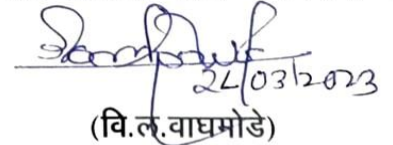 24/03/2023
(वि.ल.वाघमोडे)